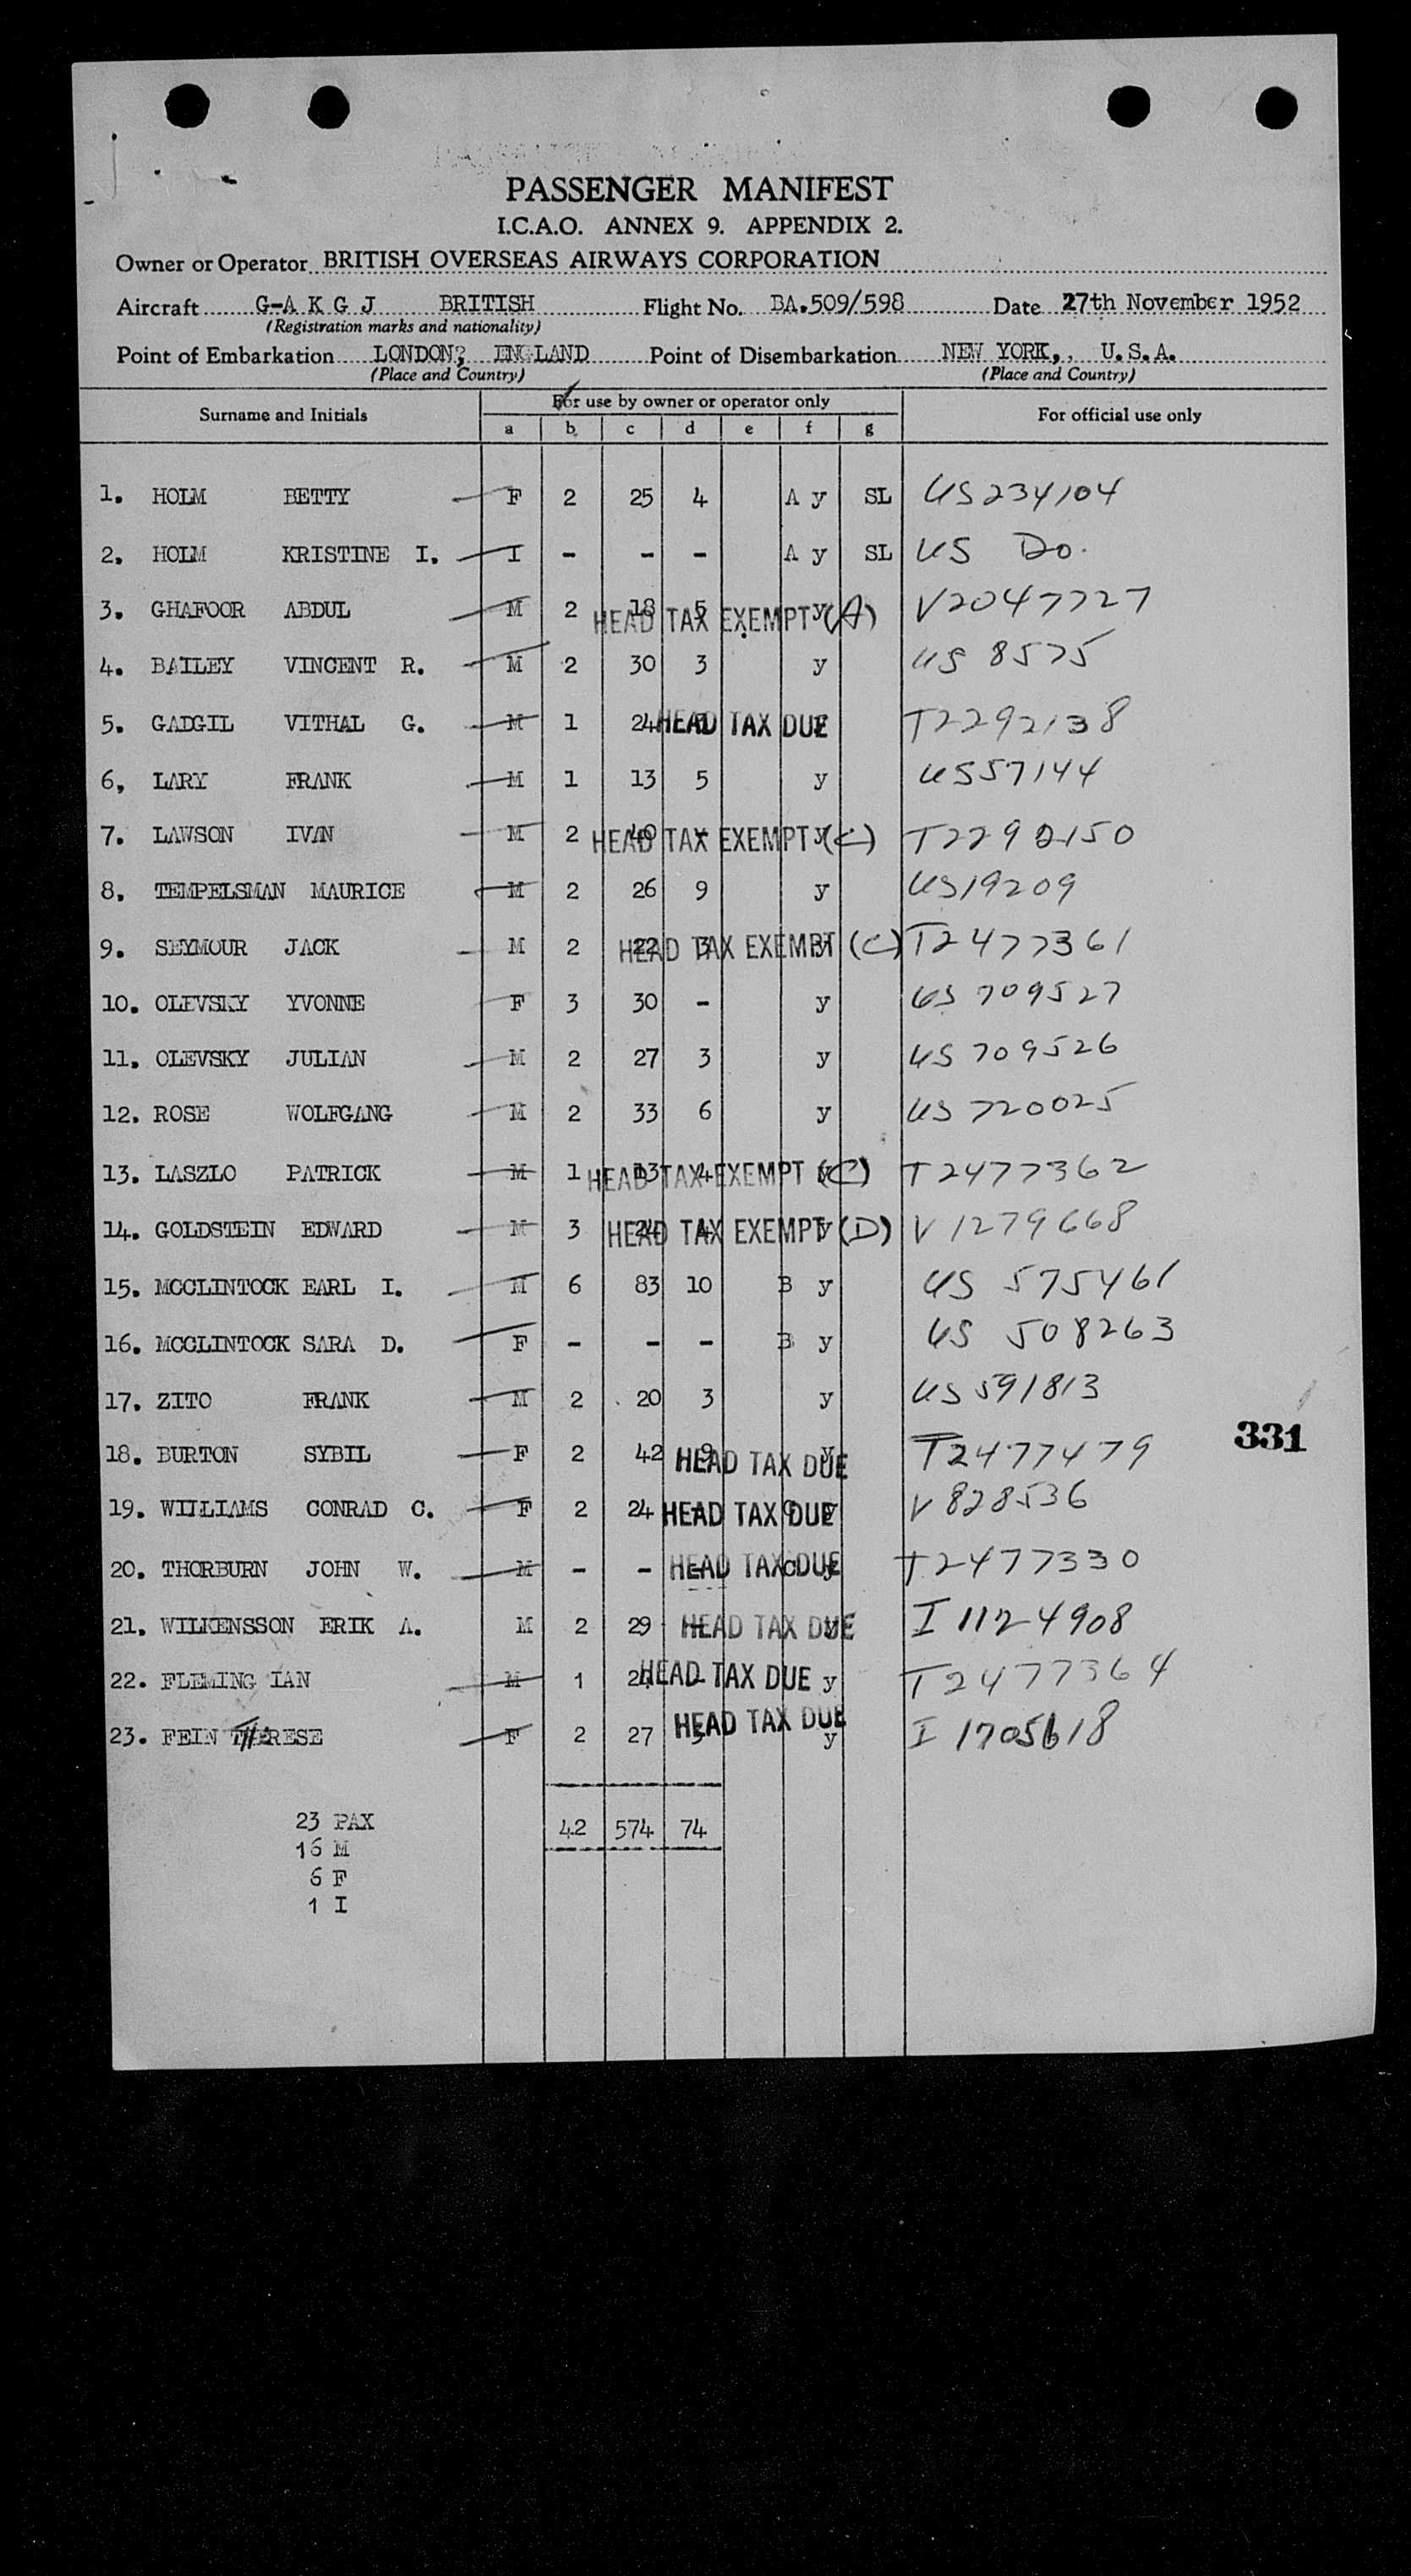 PASSENGER MANIFEST
I.C.A.O. ANNEX 9. APPENDIX 2.
Owner or Operator BRITISH OVERSEAS AIRWAYS CORPORATION
Aircraft G-A K G J BRITISH Flight No. BA.509/598 Date 27th November 1952
(Registration marks and nationality)
Point of Embarkation LONDON, ENGLAND Point of Disembarkation NEW YORK,, U.S.A.
(Place and Country) (Place and Country)
Surname and Initials For use by owner or operator only For official use only
a b c d e f g
1. HOLM BETTY F 2 25 4 A y SL US 234104
2. HOLM KRISTINE I. I - - - A y SL US Do.
3. GHAFOOR ABDUL M 2 18 5 y HEAD TAX EXEMPT (A) V2047727
4. BAILEY VINCENT R. M 2 30 3 y US 8575
5. GADGIL VITHAL G. M 1 24 HEAD TAX DUE T2292138
6, LARY FRANK M 1 13 5 y US57144
7. LAWSON IVAN M 2 40 - y HEAD TAX EXEMPT (C) T2292150
8. TEMPELSMAN MAURICE M 2 26 9 y US19209
9. SEYMOUR JACK M 2 22 3 y HEAD TAX EXEMPT (C) T2477361
10. OLEVSKY YVONNE F 3 30 - y US 709527
11. OLEVSKY JULIAN M 2 27 3 y US 709526
12. ROSE WOLFGANG M 2 33 6 y US 720025
13. LASZLO PATRICK M 1 13 4 y HEAD TAX EXEMPT (C) T2477362
14. GOLDSTEIN EDWARD M 3 24 4 y HEAD TAX EXEMPT (D) V 1279668
15. MCCLINTOCK EARL I. M 6 83 10 B y US 575461
16. MCCLINTOCK SARA D. F - - - B y US 508263
17. ZITO FRANK M 2 20 3 y US 591813
331
18. BURTON SYBIL F 2 42 9 y HEAD TAX DUE T2477479
19. WILLIAMS CONRAD C. F 2 24 - C y HEAD TAX DUE V 828536
20. THORBURN JOHN W. M - - - C y HEAD TAX DUE T2477330
21. WILKENSSON ERIK A. M 2 29 - y HEAD TAX DUE I 1124908
22. FLEMING IAN M 1 24 - HEAD TAX DUE y T2477364
23. FEIN THERESE F 2 27 HEAD TAX DUE y I 1705618
23 PAX 42 574 74
16 M
6 F
1 I